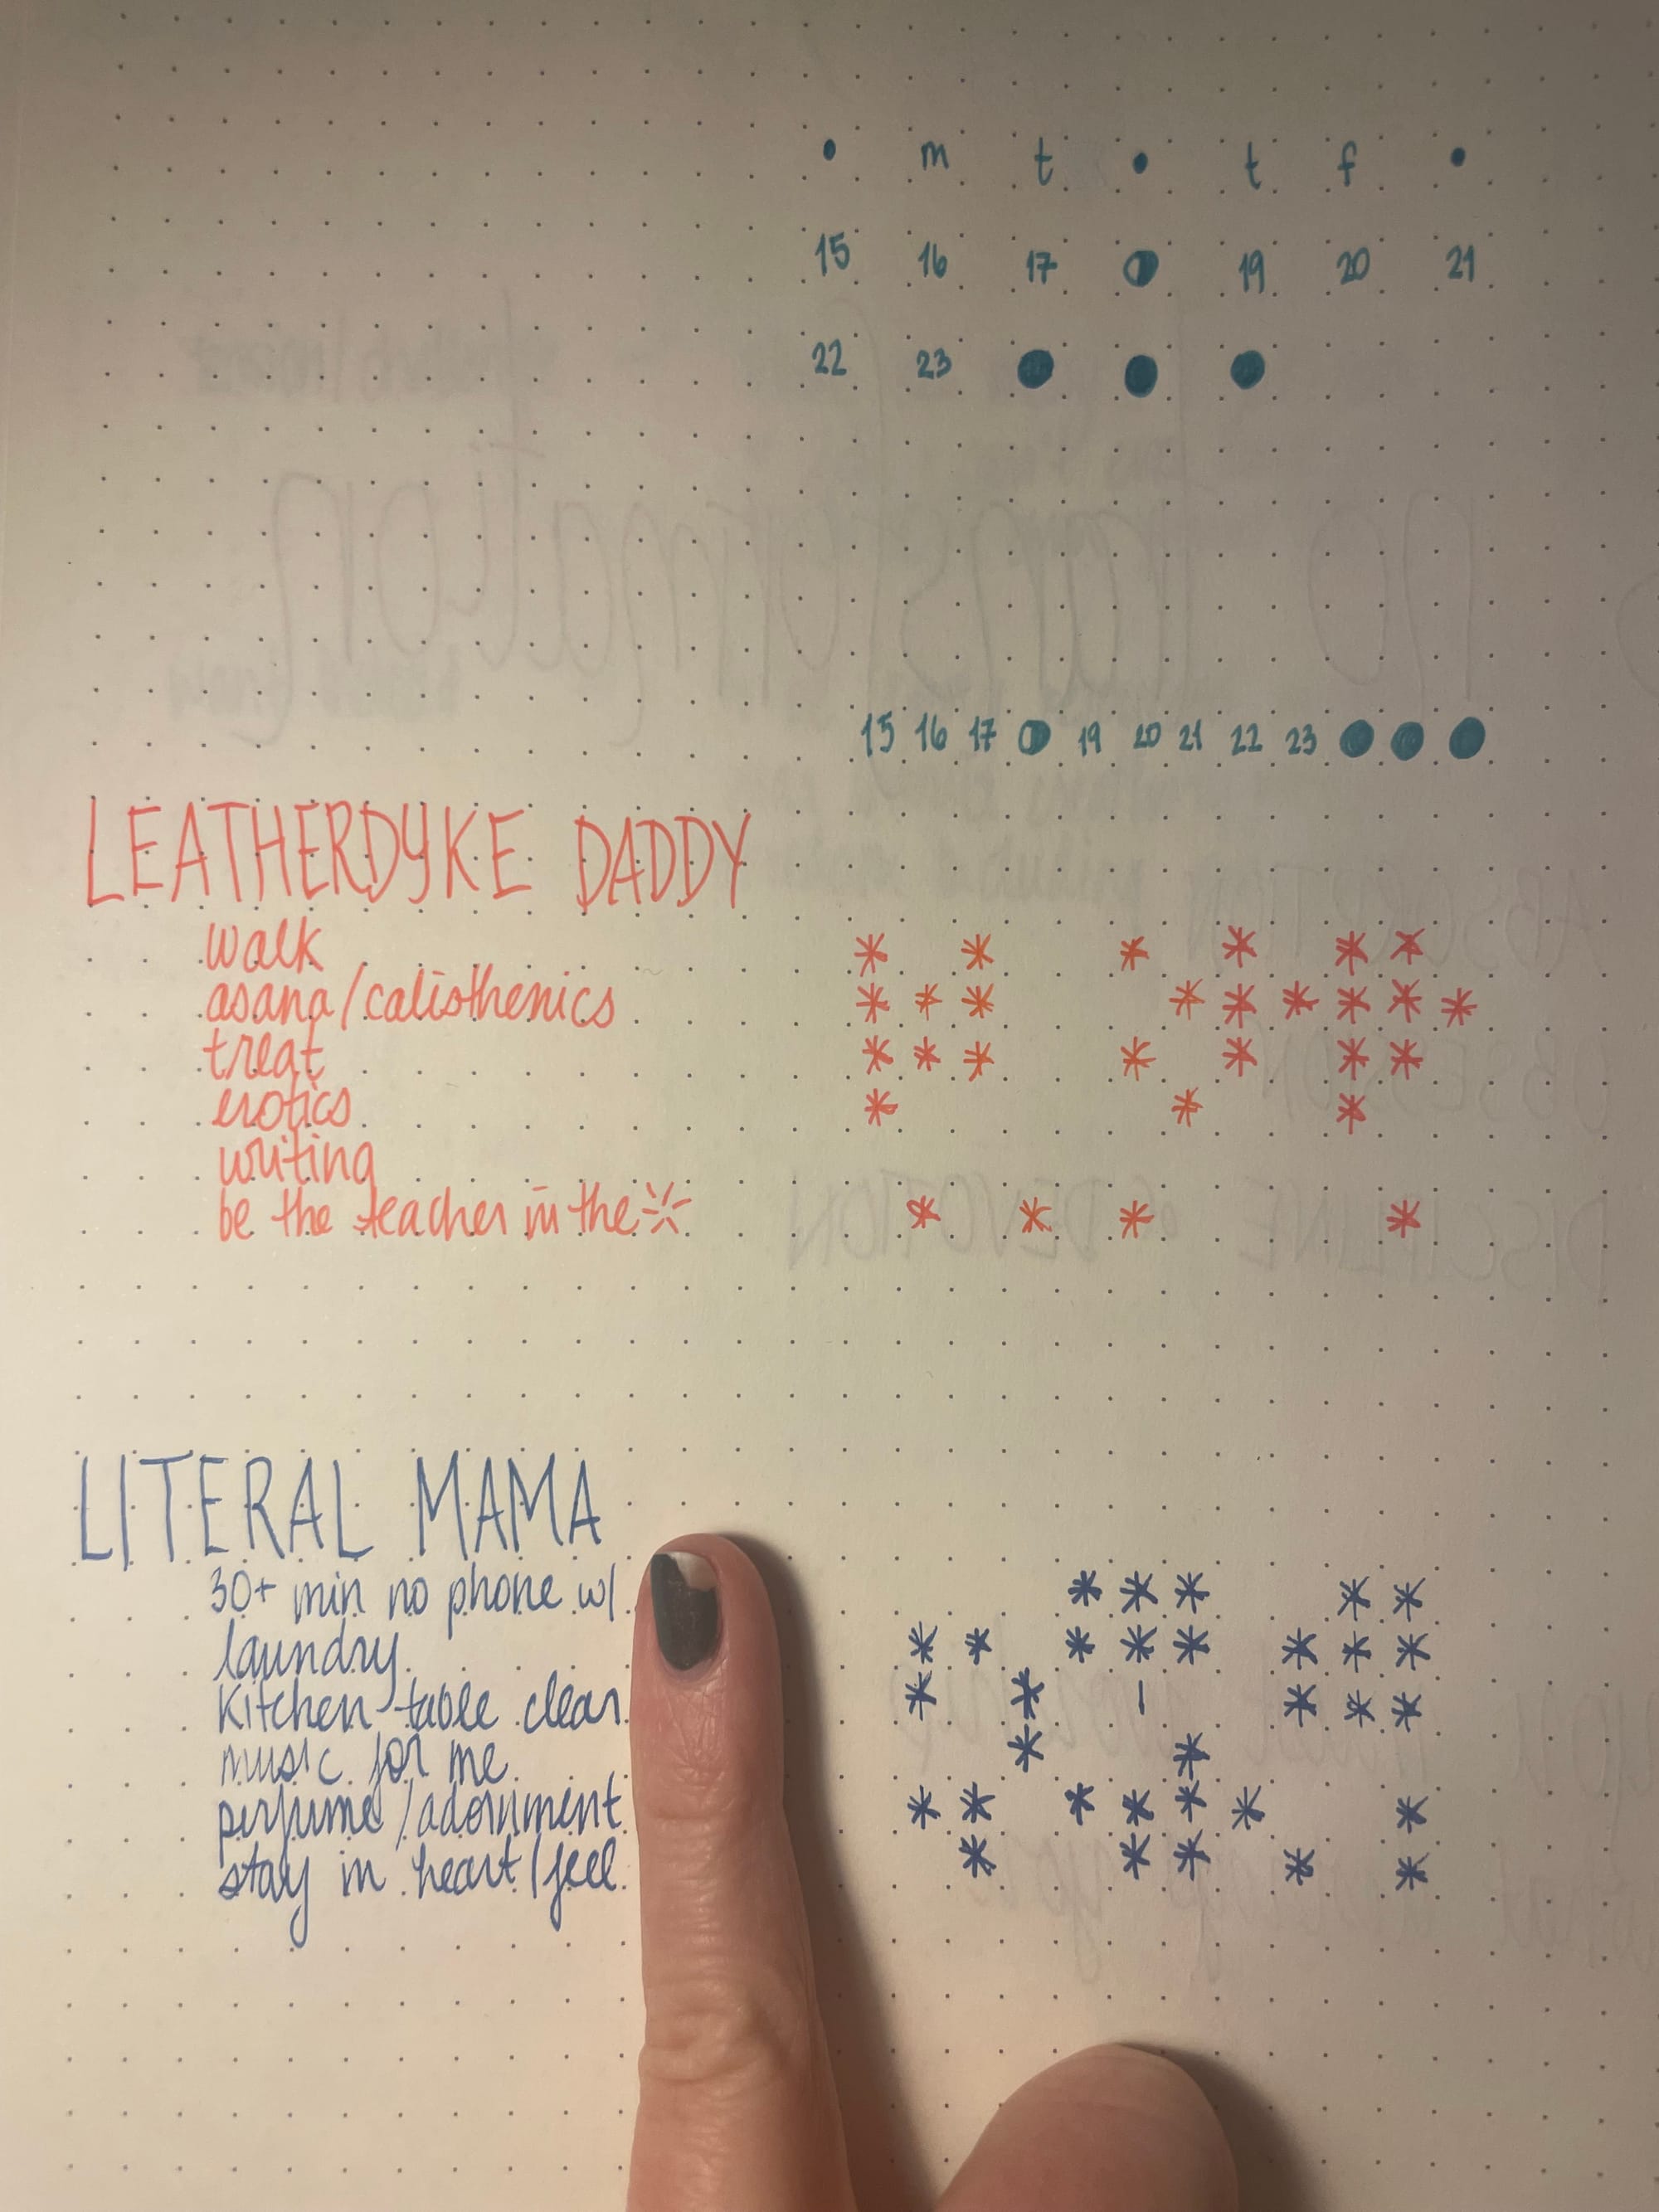 • m t • t f •
15 16 17 19 20 21
22 23
15 16 17 19 20 21 22 23
LEATHERDYKE DADDY
walk
asana/calisthenics
treat
erotics
writing
be the teacher in the
LITERAL MAMA
30+ min no phone w/
laundry
kitchen table clear
music for me
perfume/adornment
stay in heart/feel